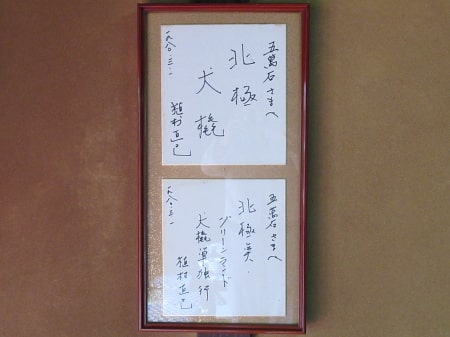 五萬石さまへ
北極
犬橇
植村直己
一九八〇・三・一
五萬石さまへ
北極奌・
グリーンランド
犬橇單独行
植村直己
一九八〇・三・一